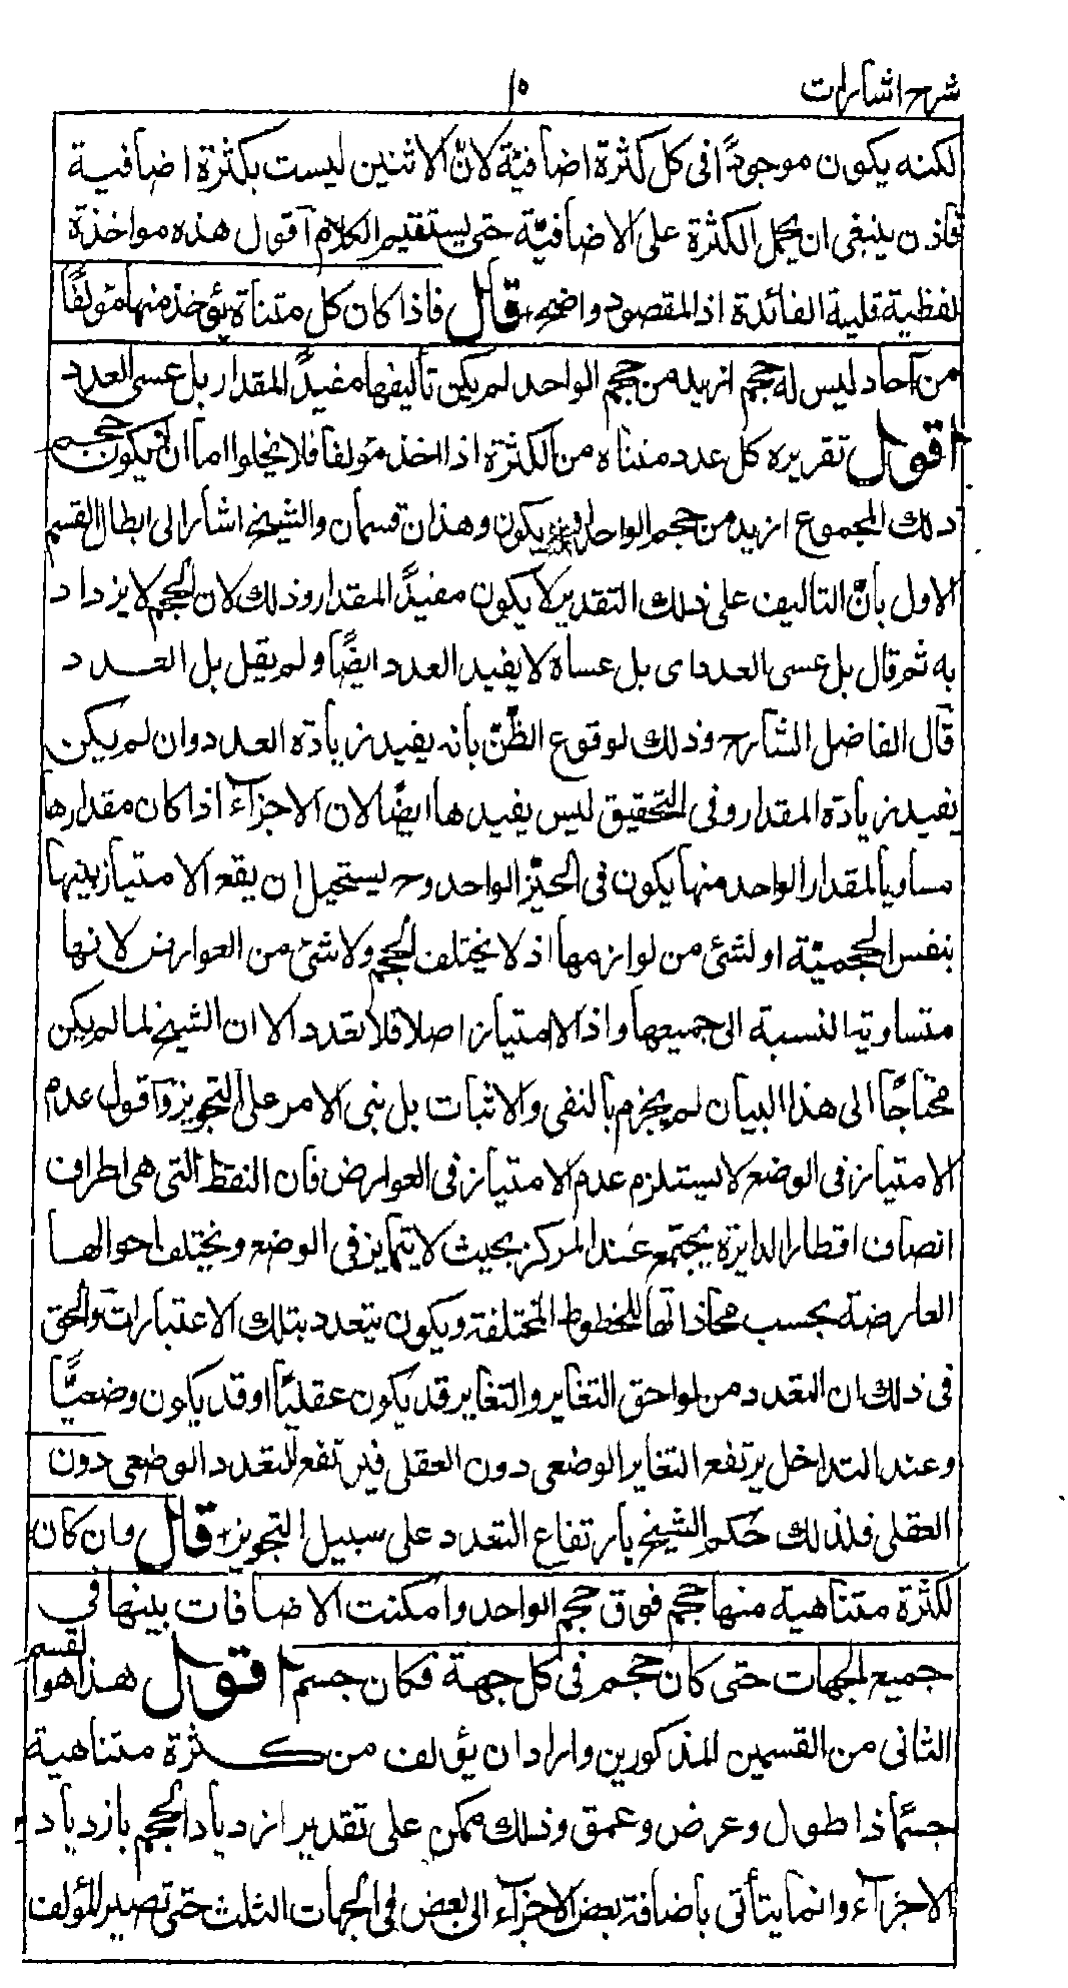 شرح اشارات ١٥
لكنه يكون موجودًا في كل كثرة اضافيّة لانّ الاثنين ليست بكثرة اضافية
فاذن ينبغي ان يحمل الكثرة على الاضافيّة حتى يستقيم الكلام آقول هذه مواخذة
لفظية قليلة الفائدة اذ المقصود واضح قال فاذا كان كل متناة يؤخذ منها مؤلفًا
من آحاد ليس له حجم ازيد من حجم الواحد لم يكن تأليفها مفيدً المقدار بل عسى العدد
اقول تقريره كل عدد متناه من الكثرة اذا اخذ مؤلفا فلا يخلوا اما ان لا يكون حجم
ذلك المجموع ازيد من حجم الواحد يكون وهذان قسمان والشيخ اشار الى ابطال القسم
الاول بانّ التاليف على ذلك التقدير لا يكون مفيدً المقدار وذلك لان الحجم لا يزداد
به ثم قال بل عسى العدد اى بل عساه لا يفيد العدد ايضًا ولم يقل بل العدد
قال الفاضل الشارح وذلك لوقوع الظنّ بانه يفيد زيادة العدد وان لم يكن
يفيد زيادة المقدار وفى التحقيق ليس يفيدها ايضًا لان الاجزآء اذا كان مقدارها
مساويا لمقدار الواحد منها يكون فى الحيّز الواحد وح يستحيل ان يقع الامتياز بينها
بنفس الحجميّة او لشئ من لوازمها اذ لا يختلف الحجم ولا شئ من العوارض لانها
متساوية النسبة الى جميعها واذ لا امتياز اصلا فلا تعدد الا ان الشيخ لما لم يكن
محتاجًا الى هذا البيان لم يجزم بالنفى والاثبات بل بنى الامر على التجويز وآقول عدم
الامتياز فى الوضع لا يستلزم عدم الامتياز فى العوارض فان النقط التى هى اطراف
انصاف اقطار الدايرة يجتمع عند المركز بحيث لا يتمايز فى الوضع ويختلف احوالها
العارضة بحسب محاذاتها للخطوط المختلفة ويكون يتعدد بتلك الاعتبارات والحق
فى ذلك ان التعدد من لواحق التغاير والتغاير قد يكون عقليًا وقد يكون وضعيًّا
وعند التداخل يرتفع التغاير الوضعى دون العقلى فيرتفع التعدد الوضعى دون
العقلى فلذلك حكم الشيخ بارتفاع التعدد على سبيل التجويز قال وان كان
لكثرة متناهية منها حجم فوق حجم الواحد وامكنت الاضافات بينها في
جميع الجهات حتى كان حجم فى كل جهة فكان جسم اقول هذا هوا لقسم
الثانى من القسمين المذكورين واراد ان يؤلف من كثرة متناهية
جسمًا ذا طول وعرض وعمق وذلك ممكن على تقدير ازدياد الحجم بازدياد
الاجزآء وانما يتأتى باضافة بعض الاجزآء الى بعض فى الجهات الثلث حتى تصير المؤلف